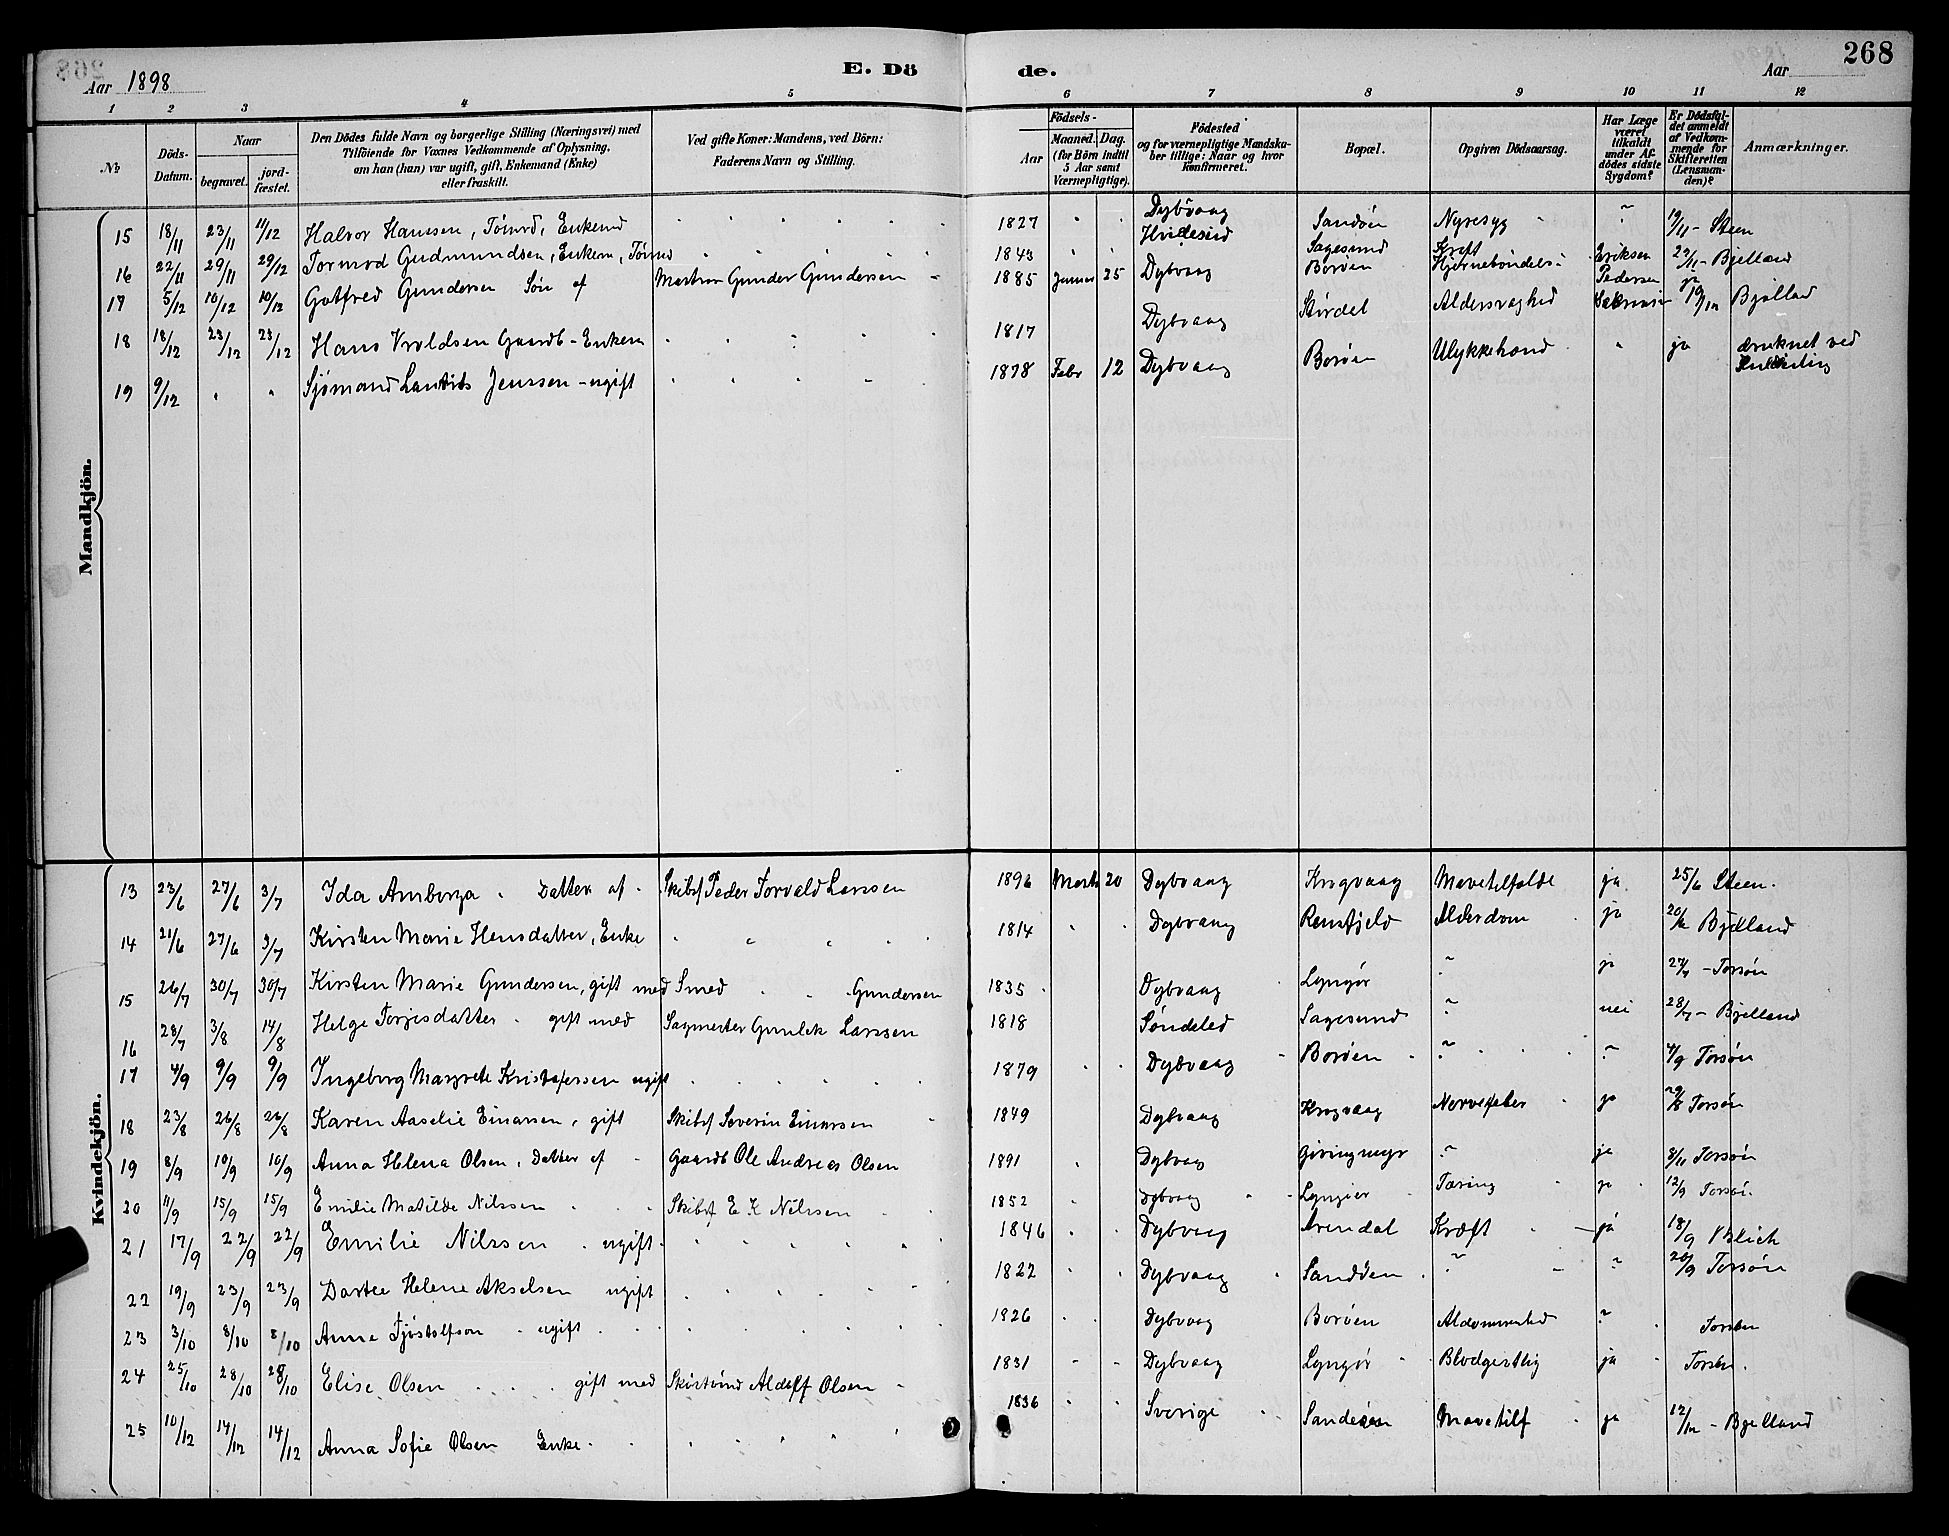 268
Aar 1898
E. Dö de.
Aar
1 2 3 4 5 6 7 8 9 10 11 12
No.
Döds-Datum.
Naar
begravet.
jord-fæstet.
Den Dödes fulde Navn og borgerlige Stilling (Næringsvei) med
Tilföiende for Voxnes Vedkommende af Oplysning,
om han (hun) var ugift, gift, Enkemand (Enke)
eller fraskilt.
Ved gifte Koner: Mandens, ved Börn:
Faderens Navn og Stilling.
Födsels-
Aar
Maaned. Dag.
(for Börn indtil
5 Aar samt
Værnepligtige).
Födested
og for værnepligtige Mandska-
ber tillige: Naar og hvor
konfirmeret.
Bopæl.
Opgiven Dödsaarsag.
Har Læge
været
tilkaldt
under Af-
dödes sidste
Sygdom?
Er Dödsfal-
det anmeldt
af Vedkom-
mende for
Skifteretten
(Lensman-
den)?
Anmærkninger.
Mandkjön.
15 18/11 23/11 11/12 Halvor Hansen, Tömrd, Enkemd 1827 Dybvaag Sandöen Nyresyg ~ 19/11 - Steen
16 22/11 29/11 29/12 Tormod Gudmundsen, Enkem, Tömrd 1843 Hvidesed Sagesund Kræft Eriksen 22/11 - Bjelland
17 5/12 10/12 10/12 Gotfred Gundersen Sön af Matros Gunder Gundersen 1885 Januar 25 Dybvaag Boröen Hjerneböndels: Pedersen ja
18 18/12 23/12 23/12 Hans Vroldsen Gaardb - Enkem 1817 Dybvaag Stördal Aldersvaghed 19/12 Bjelland
19 9/12 Sjömand Laurits Jenssen - ugift 1878 Febr 12 Dybvaag Boröen Ulykkehænd ja druknet ved
Kvindekjön.
13 23/6 27/6 3/7 Ida Amborza Datter af Skibsf Peder Torvald Larssen 1896 Marts 20 Dybvaag Krogvaag Mavetilfælde ja 25/6 Steen.
14 21/6 27/6 3/7 Kirsten Marie Hansdatter, Enke 1814 Dybvaag Ramsfjeld Alderdom ja Bjelland
15 26/7 30/7 30/7 Kirsten Marie Gundersen, gift med Smed Gundersen 1835 Dybvaag Lyngör ~ ja 27/7 - Torsön
16 28/7 3/8 14/8 Helge Torjesdatter gift med Sagmester Gunlek Larssen 1818 Söndeled Sagesund ~ nei 28/7 - Bjelland
17 4/9 9/9 9/9 Ingeborg Margrete Kristofersen ugift 1879 Dybvaag Boröen ~ ~ 4/9 Torsön
18 23/8 26/8 26/8 Karen Aaselie Einarsen, gift Skibsf Severin Einarsen 1849 Dybvaag Krogvaag Nervefeber ja Torsön
19 8/9 10/9 10/9 Anna Helena Olsen, Datter af Gaardb Ole Andreas Olsen 1891 Dybvaag Givingmyr ~ ja Torsön
20 11/9 15/9 15/9 Emilie Matilde Nilssen Skibsf E K Nilssen 1852 Dybvaag Lyngör Tæring ja 12/9 Torsön.
21 17/9 22/9 22/9 Emilie Nilssen ugift 1846 Dybvaag Arendal Kræft - ja 18/9 Blich
22 19/9 23/9 23/9 Dortea Helene Akselsen ugift 1822 Dybvaag Sandöen ~ ~ 20/9 Torsön
23 3/10 8/10 8/10 Anne Fjöstolfson ugift 1826 Dybvaag Boröen ~ Torsön
24 25/10 28/10 28/10 Elise Olsen gift med Skistömd Adolf Olsen 1831 Dybvaag Lyngör Blodgestlig ja Torsön.
25 10/12 14/12 14/12 Anna Sofie Olsen Enke 1836 Sverige Sandöen Mavetilf ja 12/12 - Bjelland